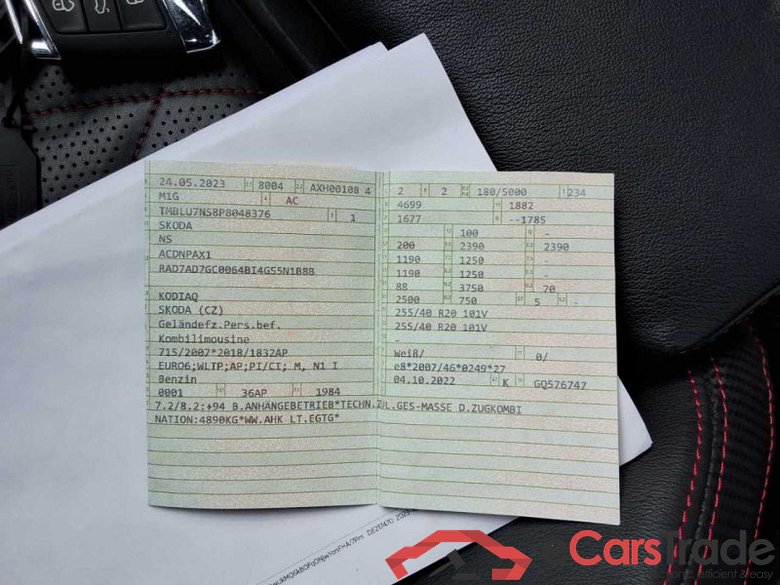 24.05.2023 8004 AXH00108 4
M1G AC
TMBLU7NS8P8048376 1
SKODA
NS
ACDNPAX1
RAD7AD7GC0064BI4GS5N1B8B
KODIAQ
SKODA (CZ)
Geländefz.Pers.bef.
Kombilimousine
715/2007*2018/1832AP
EURO6;WLTP;AP;PI/CI; M, N1 I
Benzin
0001 36AP 1984
2 2 180/5000 234
4699 1882
1677 --1785
100 -
200 2390 2390
1190 1250 -
1190 1250 -
88 3750 70
2500 750 5 -
255/40 R20 101V
255/40 R20 101V
-
Weiß/ 0/
e8*2007/46*0249*27
04.10.2022 K GQ576747
7.2/8.2:+94 B.ANHÄNGEBETRIEB*TECHN.ZUL.GES-MASSE D.ZUGKOMBI
NATION:4890KG*WW.AHK LT.EGTG*
CarsTrade
efficient & easy